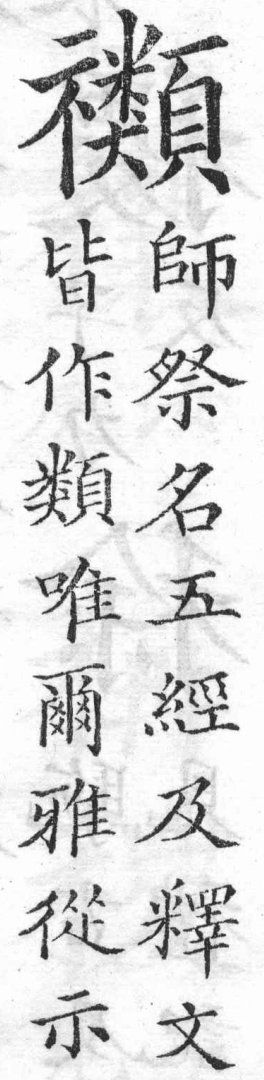 禷
師祭名五經及釋文
皆作類唯爾雅從示